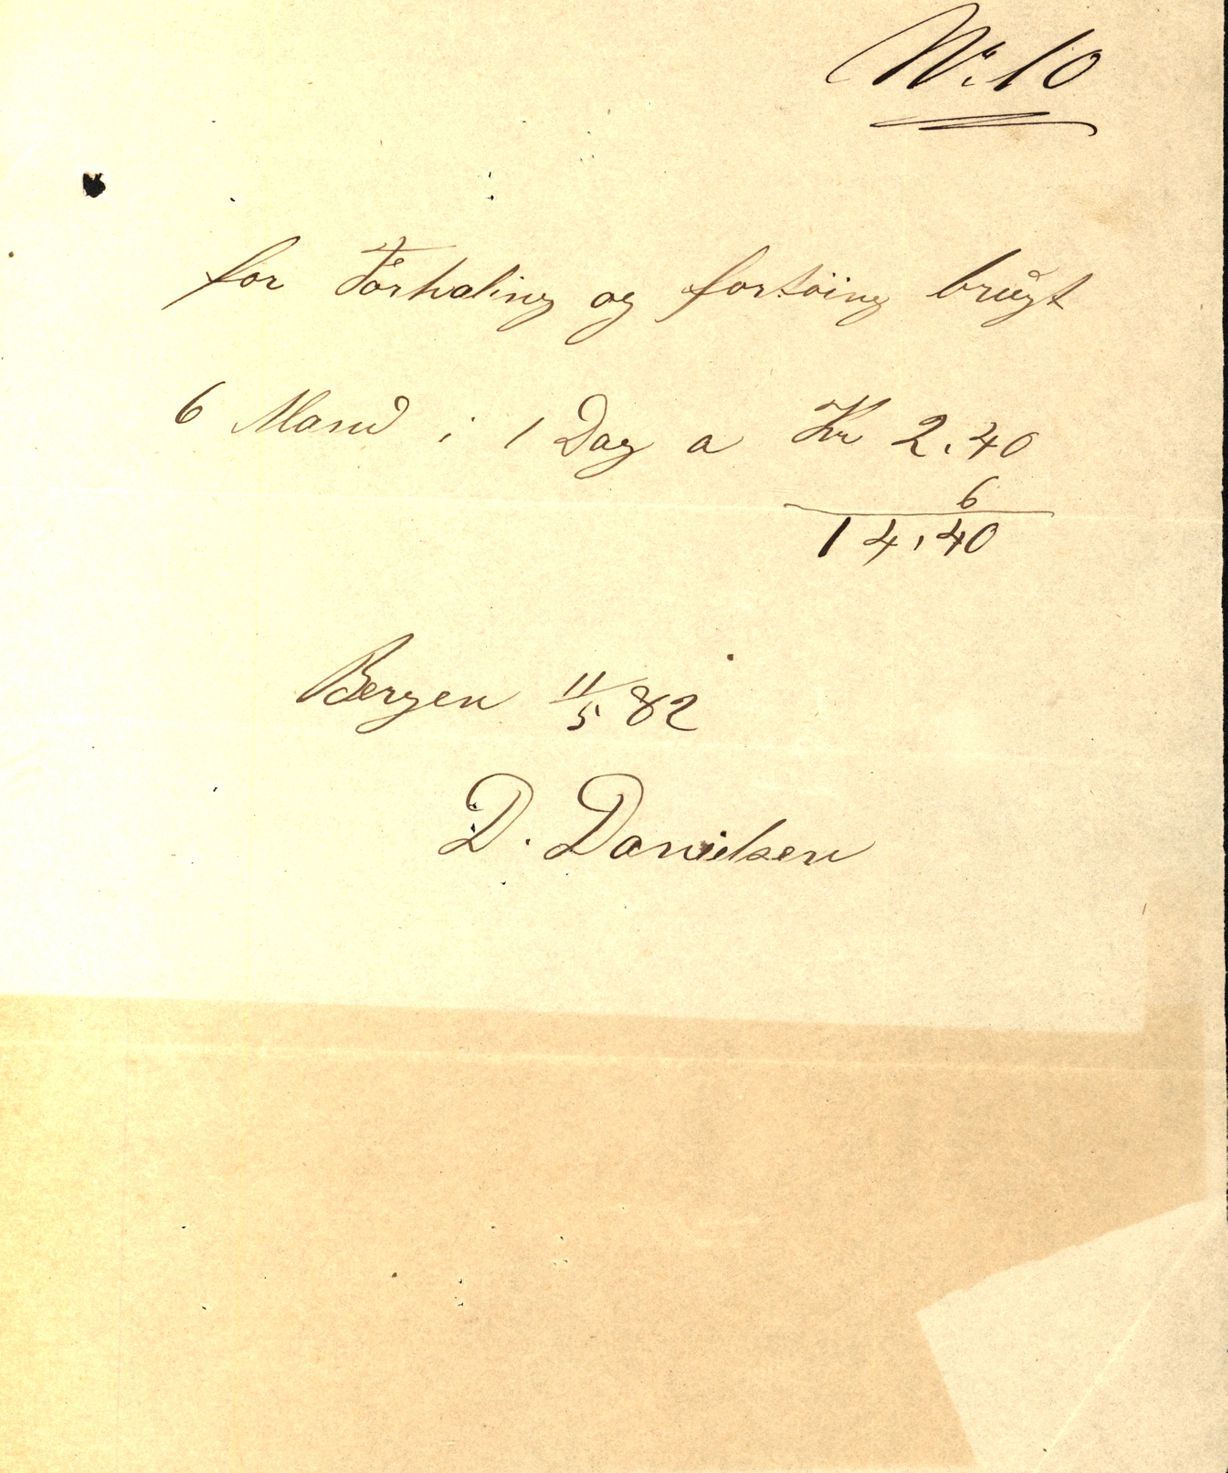 No. 10
for Forhaling og fortöing brugt
6 Mand i 1 Dag a Kr 2.40
6
14,40
Bergen 11/5 82
D. Danielsen